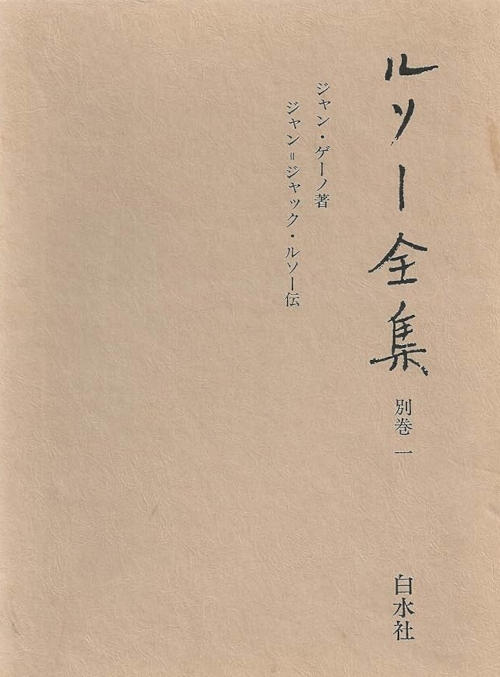 ルソー全集
別巻 一
白水社
ジャン・ゲーノ著
ジャン=ジャック・ルソー伝